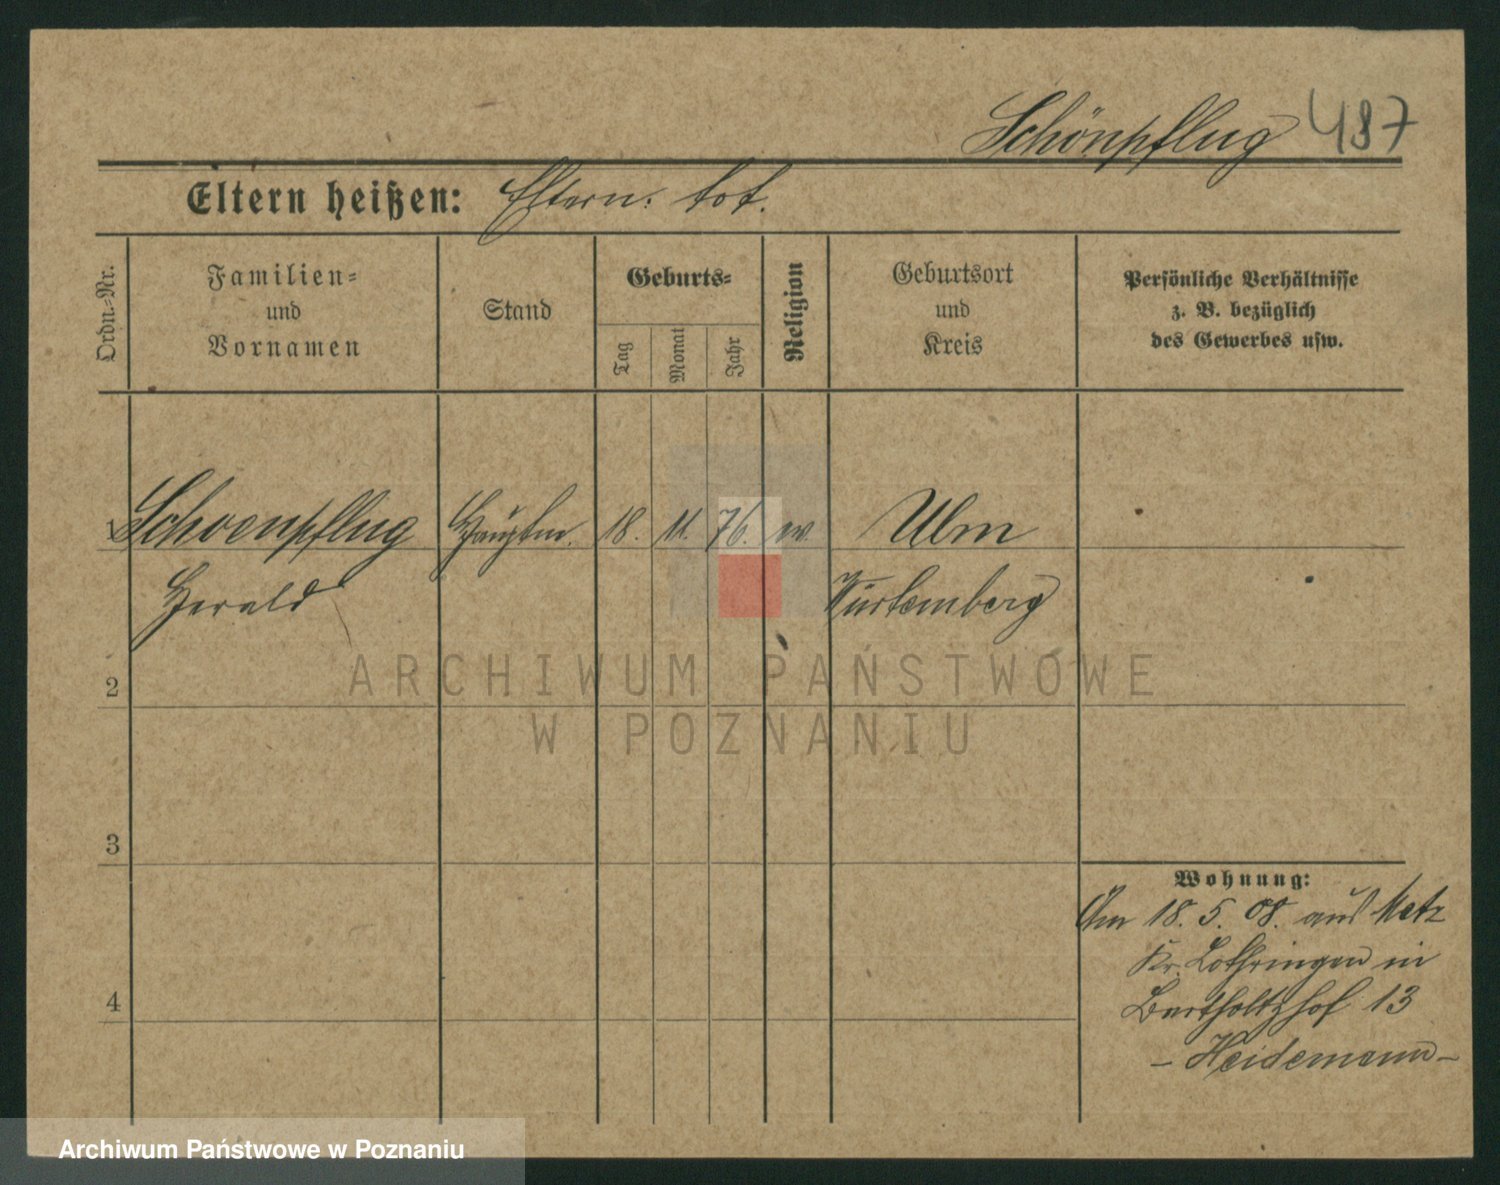 Schönpflug 487
Eltern heißen: Eltern: tot.
Ordn.-Nr.
Familien-
und
Vornamen
Stand
Geburts-
Tag
Monat
Jahr
Religion
Geburtsort
und
Kreis
Persönliche Verhältnisse
z. B. bezüglich
des Gewerbes usw.
1 Schoenpflug Hauptm. 18. 11. 76. ev. Ulm
Herald Würtemberg
2
3
4
Wohnung:
Am 18. 5. 08. aus Metz
Kr. Lothringen in
Bartholtzhof 13
- Heidemann -
ARCHIWUM PAŃSTWOWE
W POZNANIU
Archiwum Państwowe w Poznaniu